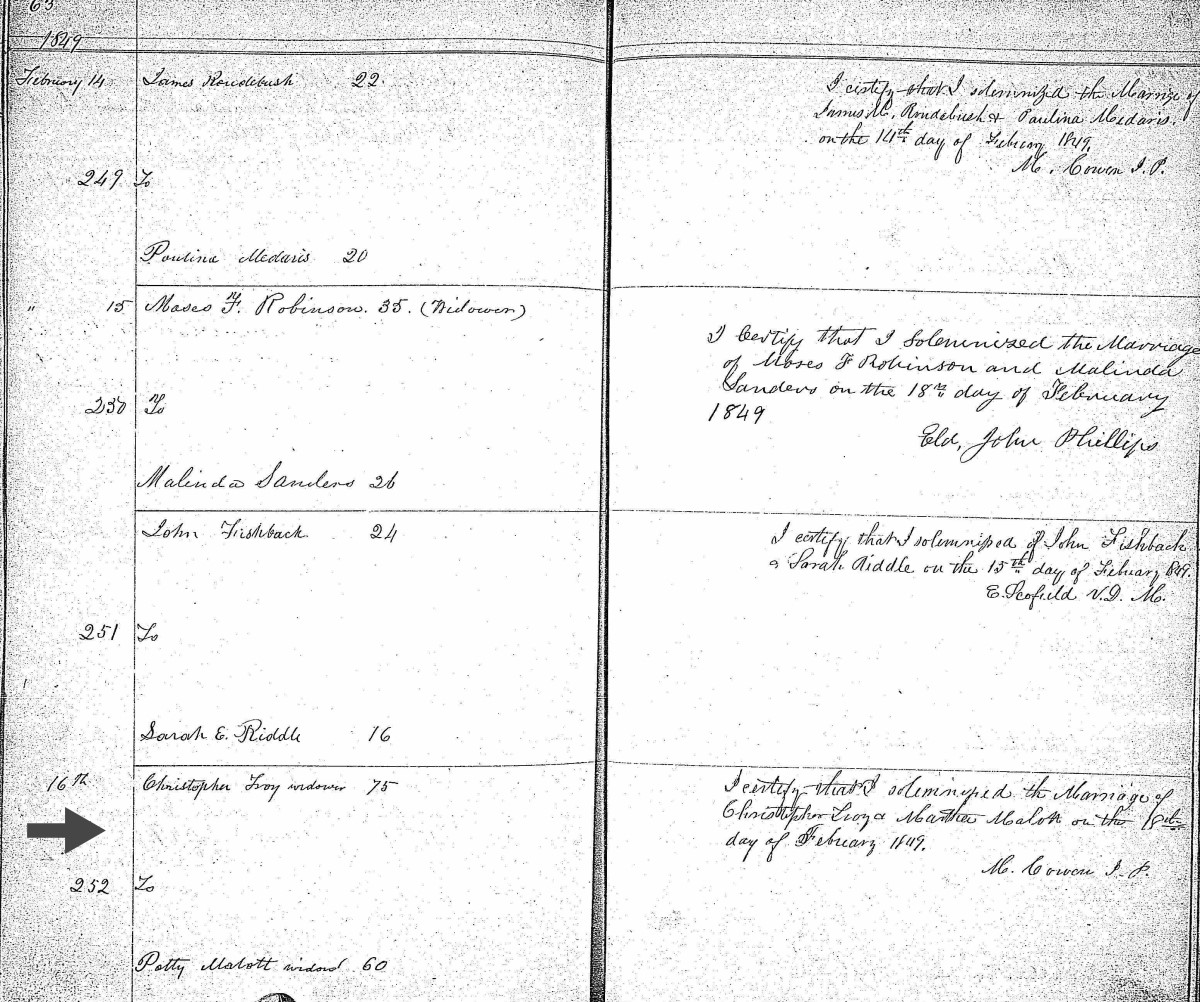 63
1849
February 14 James Roudebush 22
I certify that I solemnized the Marrige of
James M. Roudebush & Paulina Medaris.
on the 14th day of Februry 1849.
M. Cowen J. P.
249 To
Paulina Medaris 20
" 15 Moses F. Robinson. 35. (Widower)
I Certify that I Solemnized the Marriage
of Moses F Robinson and Malinda
Sanders on the 18th day of February
1849
Eld, John Phillips
250 To
Malinda Sanders 26
John Fishback 24
I certify that I solemnized of John Fishback
& Sarah Riddle on the 15th day of Februarz 1849.
E. Scofield V. D. M.
251 To
Sarah E. Riddle 16
16th Christopher Troy widower 75
I certify that I solemnized the Marriage of
Christopher Troy & Martha Malott on the
day of Februarz 1849.
M. Cowen J. P.
252 To
Patty Malott widow 60